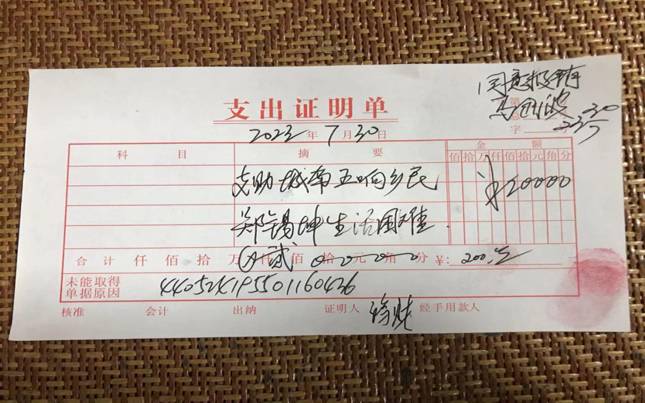 支出证明单
同意报销
23.7.30
字
2023年7月30日
科目 摘要 金额
佰拾万仟佰拾元角分
支助城南五响乡民 ¥20000
郑锡坤生活困难
合计 仟佰拾万仟佰拾元角分 ¥:200元
未能取得
单据原因
核准 会计 出纳 证明人 经手用款人